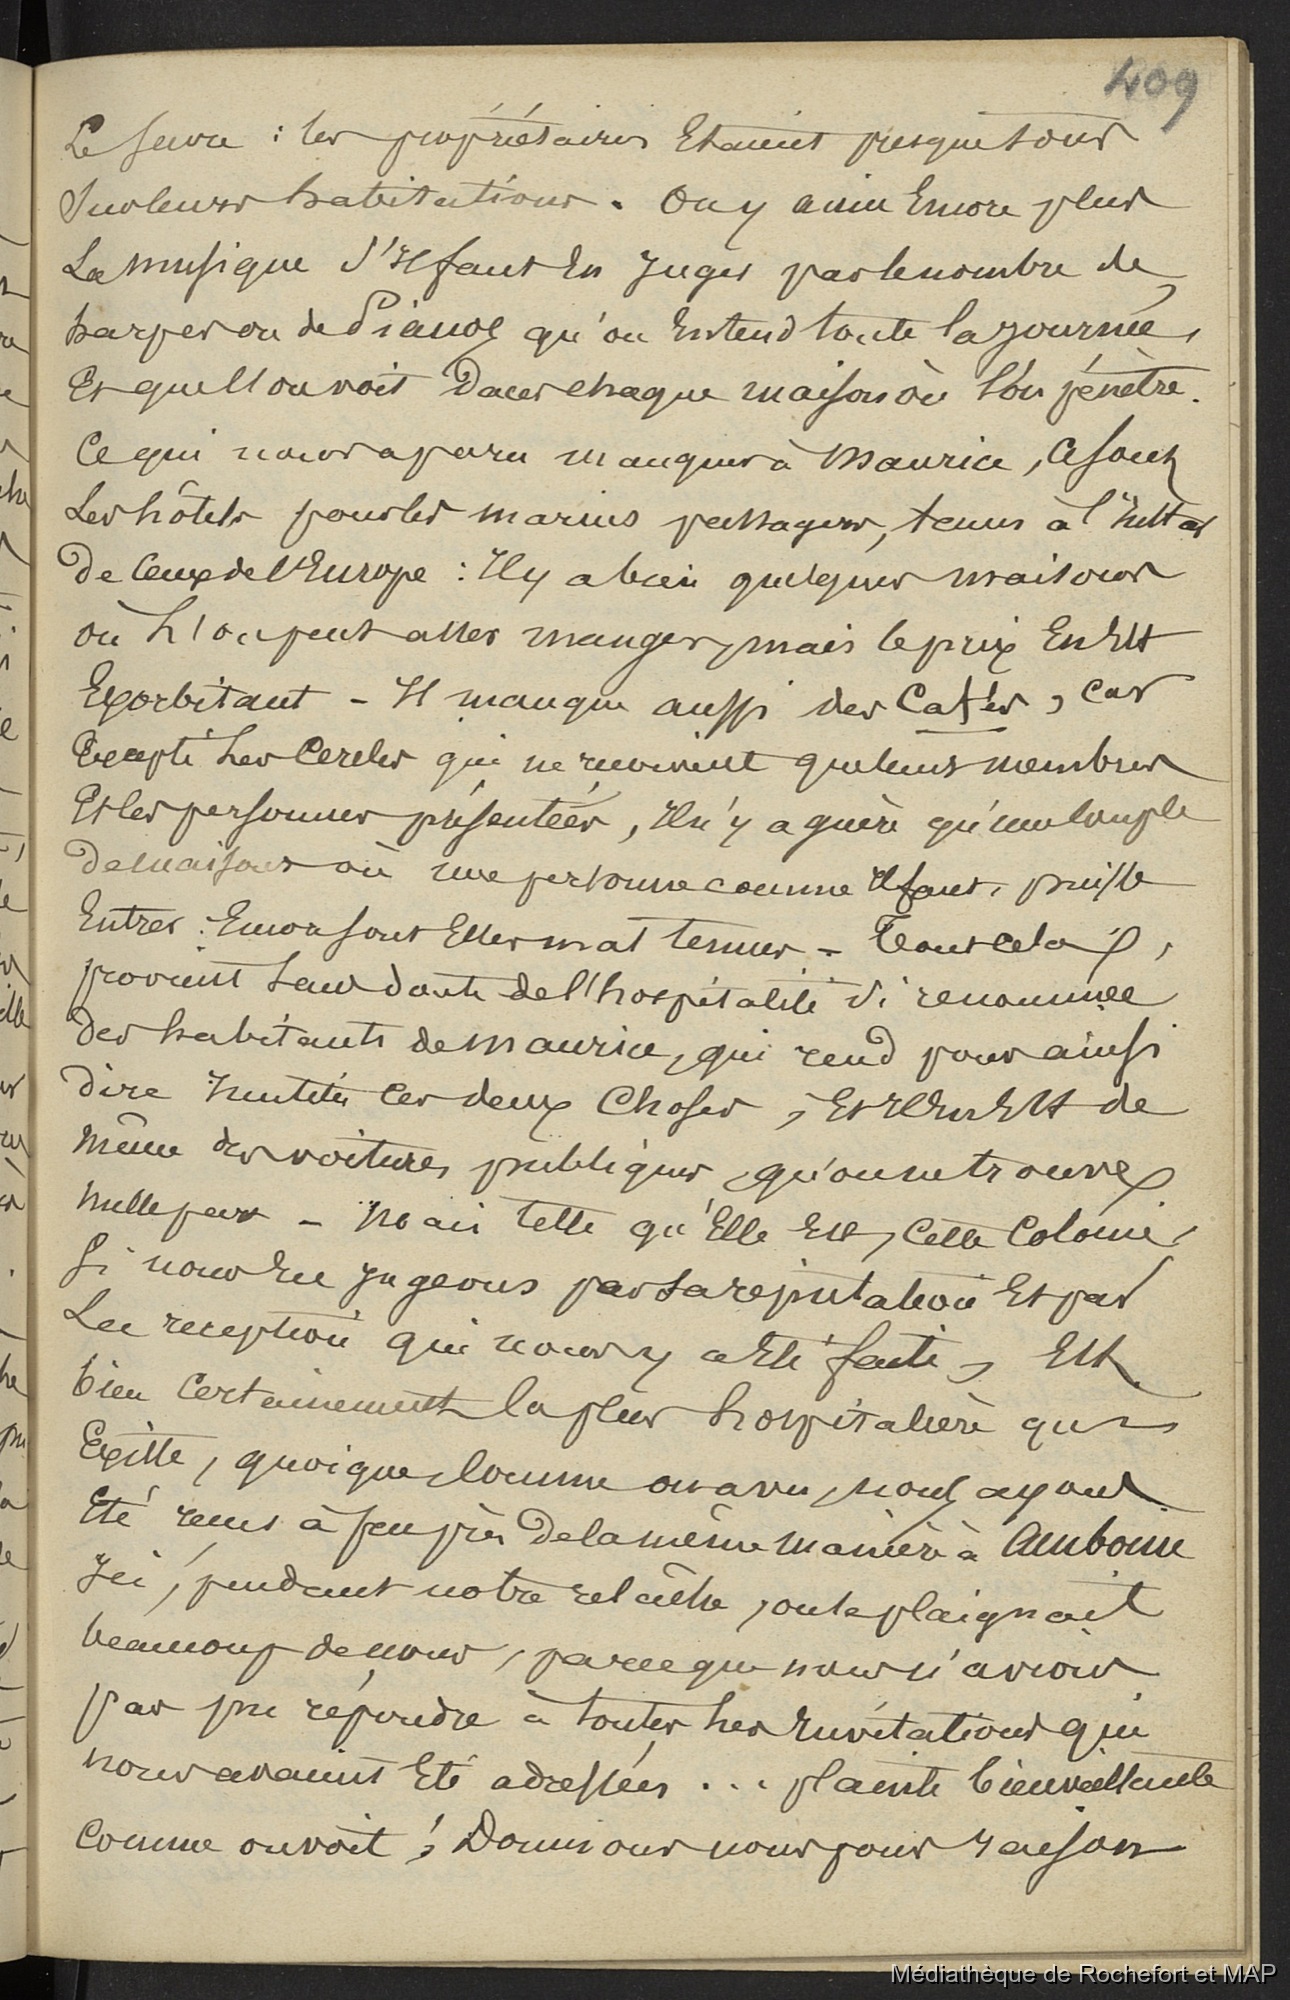 409
Le sucre : les propriétaires Etaient presque tous
Sur leurs habitations. On y aime Encore plus
La musique S'Il faut En Juger par le nombre de
harpes ou de Pianos qu'on Entend toute la journée,
Et que l'on voit Dans chaque maison où l'on pénètre.
Ce qui nous a paru manquer à Maurice, ce sont
Les hôtels pour les marins passagers, tenus à l'Instar
De Ceux de l'Europe : Il y a bien quelques maisons
où l'on peut aller manger, mais le prix En Est
Exorbitant - Il manque aussi des Cafés, car
Excepté Les Cercles qui ne reçoivent que leurs membres
Et les personnes présentées, Il n'y a guère qu'une couple
De maisons où une personne comme Il faut, puisse
Entrer : Encore sont Elles mal tenues - Tout cela,
provient sans doute de l'hospitalité si renommée
Des habitants de maurice, qui rend pour ainsi
Dire Inutiles ces deux Choses, Et Il En Est de
même des voitures publiques, qu'on ne trouve
nulle part - Mais telle qu'Elle Est, Cette Colonie,
Si nous En Jugeons par sa réputation Et par
La reception qui nous y a Eté faite, Est
bien certainement la plus hospitalière qui
Existe, quoique, comme on a vu, nous ayons
Eté reçus à peu près De la même manière à Amboine
Ici, pendant notre relâche, on se plaignait
beaucoup de nous, parce que nous n'avions
pas pu répondre à toutes les Invitations qui
nous avaient Eté adressées ... plainte bienveillante
Comme on voit ; Donnons nous pour raison
Médiathèque de Rochefort et MAP